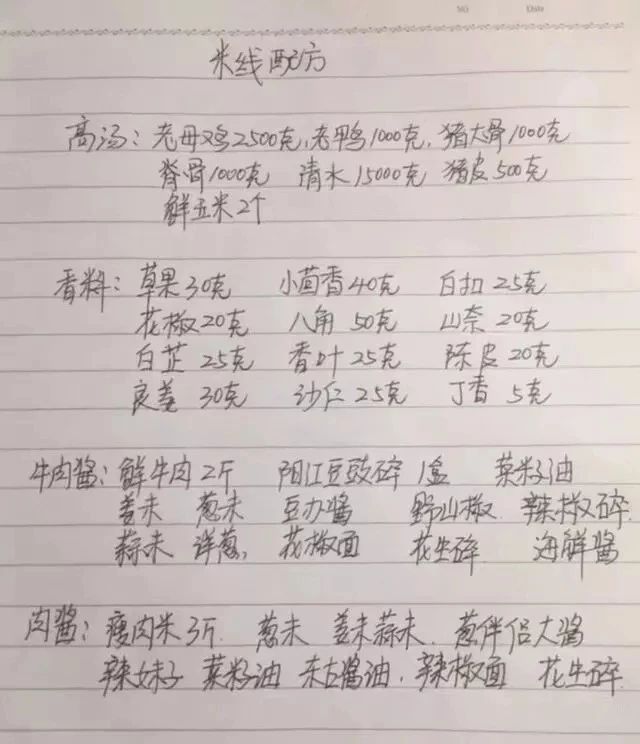 NO
Date
米线配方
高汤：老母鸡2500克，老鸭1000克，猪大骨1000克
脊骨1000克 清水15000克 猪皮500克
鲜玉米2个
香料：草果30克 小茴香40克 白扣25克
花椒20克 八角50克 山奈20克
白芷25克 香叶25克 陈皮20克
良姜30克 沙仁25克 丁香5克
牛肉酱：鲜牛肉2斤 阳江豆豉碎1盒 菜籽油
姜末 葱末 豆办酱 野山椒 辣椒碎
蒜末 洋葱， 花椒面 花生碎 海鲜酱
肉酱：瘦肉米3斤 葱末 姜末蒜末、葱伴侣大酱
辣妹子 菜籽油 东古酱油，辣椒面 花生碎